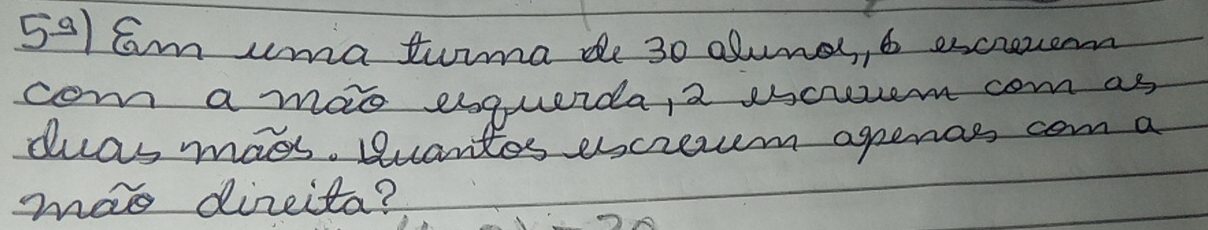 5ª) Em uma turma de 30 alunos, 6 escrevem
com a mão esquerda, 2 escrevem com as
duas mãos. Quantos escrevem apenas com a
mão direita?